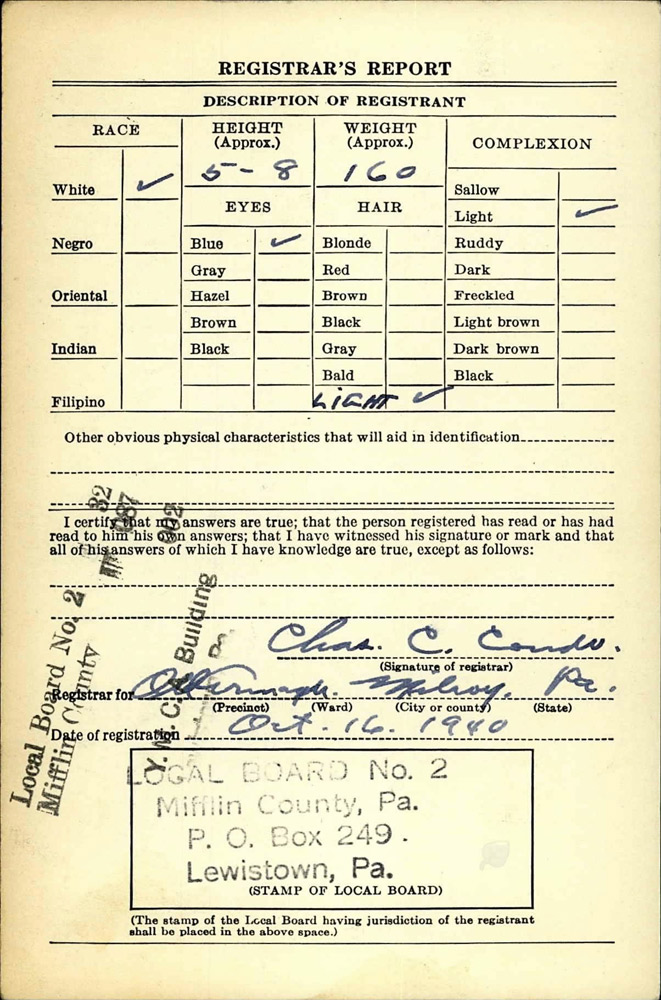 REGISTRAR'S REPORT
DESCRIPTION OF REGISTRANT
RACE
HEIGHT (Approx.)
WEIGHT (Approx.)
COMPLEXION
5-8
160
White ✓
Sallow
EYES
HAIR
Light ✓
Negro
Blue ✓
Blonde
Ruddy
Gray
Red
Dark
Oriental
Hazel
Brown
Freckled
Brown
Black
Light brown
Indian
Black
Gray
Dark brown
Bald
Black
Filipino
LIGHT ✓
Other obvious physical characteristics that will aid in identification
I certify that my answers are true; that the person registered has read or has had
read to him his own answers; that I have witnessed his signature or mark and that
all of his answers of which I have knowledge are true, except as follows:
Local Board No. 2
32
087
002
Mifflin County
Y. M. C. A. Building
Chas. C.
(Signature of registrar)
Registrar for Milroy, Pa.
(Precinct) (Ward) (City or county) (State)
Date of registration Oct. 16. 1940
LOCAL BOARD No. 2
Mifflin County, Pa.
P. O. Box 249.
Lewistown, Pa.
(STAMP OF LOCAL BOARD)
(The stamp of the Local Board having jurisdiction of the registrant
shall be placed in the above space.)